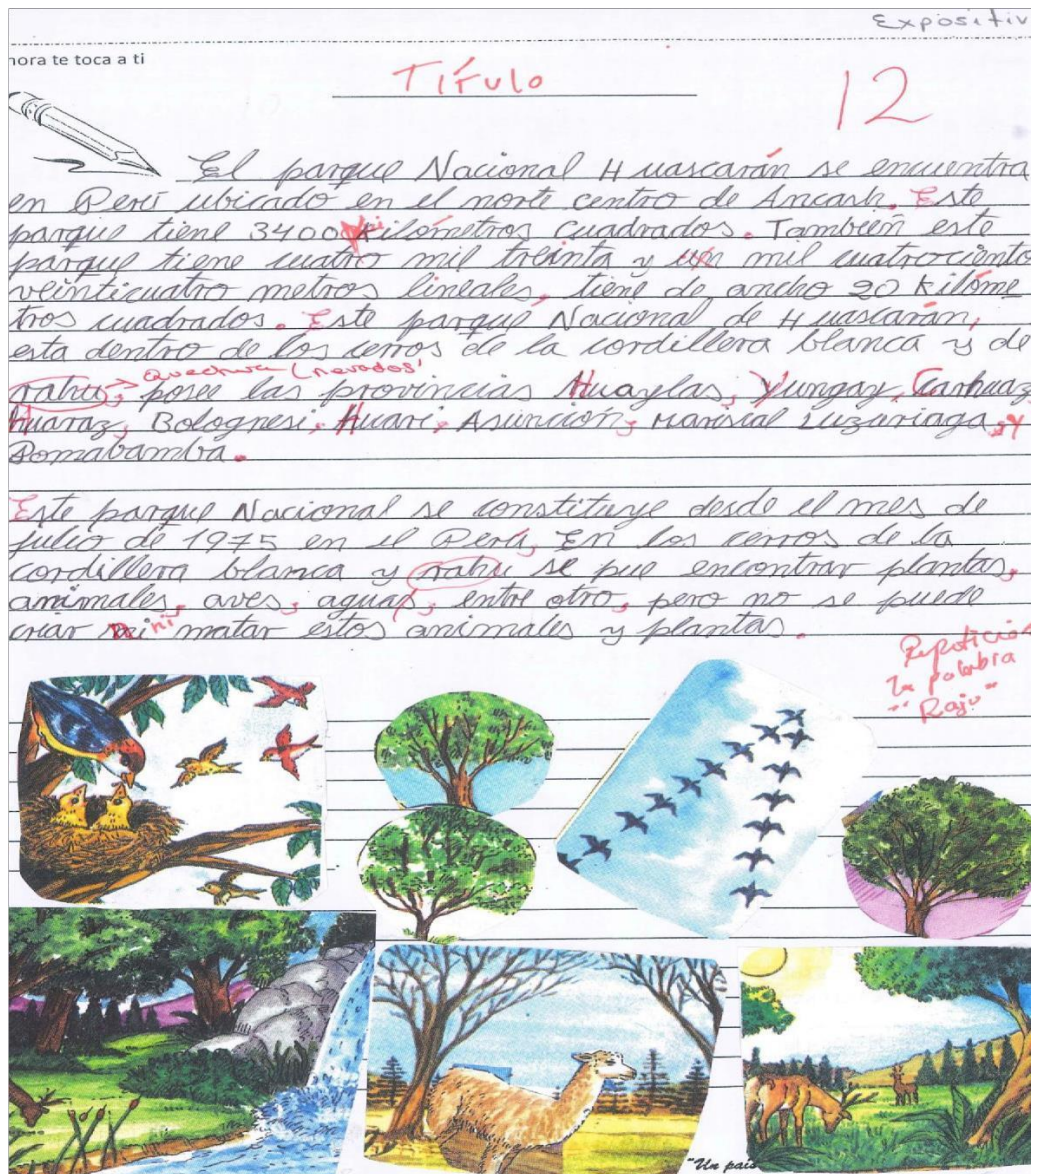 Expositiv
hora te toca a ti
Título
12
El parque Nacional Huascarán se encuentra
en Perú ubicado en el norte centro de Ancash. Este
parque tiene 3400 kilómetros cuadrados. También este
parque tiene cuatro mil treinta y un mil cuatrociento
veinticuatro metros lineales, tiene de ancho 20 kilóme
tros cuadrados. Este parque Nacional de Huascarán,
esta dentro de los cerros de la cordillera blanca y de
rahu, → Quechua (nevados) posee las provincias Huaylas, Yungay, Carhuaz
Huaraz, Bolognesi, Huari, Asunción, Mariscal Luzuriaga, y
Pomabamba.
Este parque Nacional se constituye desde el mes de
julio de 1975 en el Perú, En los cerros de la
cordillera blanca y rahu se pue encontrar plantas,
animales, aves, aguas, entre otro, pero no se puede
criar ni matar estos animales y plantas.
Repetición
la palabra
"Raju"
"Un país